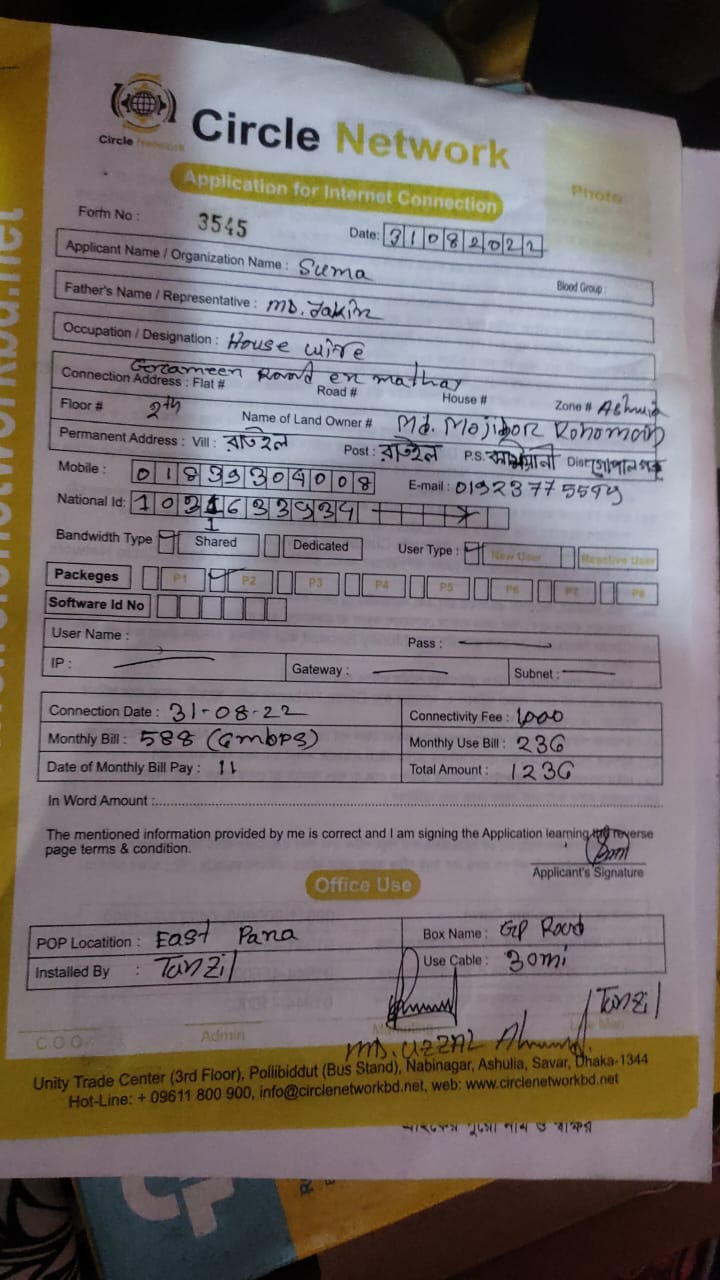 Circle Network
Circle Network
Photo
Application for Internet Connection
Form No : 3545
Date: 31082022
Applicant Name / Organization Name : Suma
Blood Group :
Father's Name / Representative : MD. Jakir
Occupation / Designation : House wife
Connection Address : Flat # Road # House # Zone #
Floor # 2th Name of Land Owner # Md. Mojibor Rohoman
Permanent Address : Vill : রাতইল Post : রাতইল P.S. Dist
Mobile : 01839304008 E-mail :
National Id:
Bandwidth Type Shared Dedicated User Type : New User Reactive User
Packeges P1 P2 P3 P4 P5 P6 P7 P8
Software Id No
User Name : Pass :
IP : Gateway : Subnet :
Connection Date : 31-08-22 Connectivity Fee : 1000
Monthly Bill : 588 (6mbps) Monthly Use Bill : 236
Date of Monthly Bill Pay : 11 Total Amount : 1236
In Word Amount :
The mentioned information provided by me is correct and I am signing the Application learning the reverse
page terms & condition.
Applicant's Signature
Office Use
POP Locatition : East Para Box Name : GP Road
Installed By : Tanzil Use Cable : 30mi
Tanzil
C.O.O Admin
MD. UZZAL Ahmmed.
Unity Trade Center (3rd Floor), Pollibiddut (Bus Stand), Nabinagar, Ashulia, Savar, Dhaka-1344
Hot-Line: + 09611 800 900, info@circlenetworkbd.net, web: www.circlenetworkbd.net